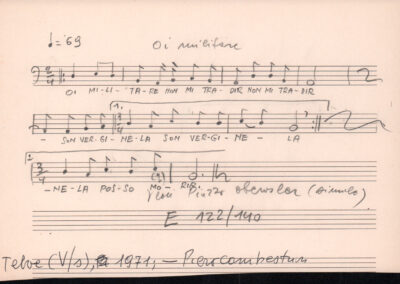 ♩= 69 Oi militare
OI MI-LI-TA-RE NON MI TRA-DIR NON MI TRA-DIR
1.
- SON VER-GI-NE-LA SON VER-GI-NE-LA
2.
-NE-LA POS-SO MO-RIR.
E 122/140
Telve (V/s), 1971, -